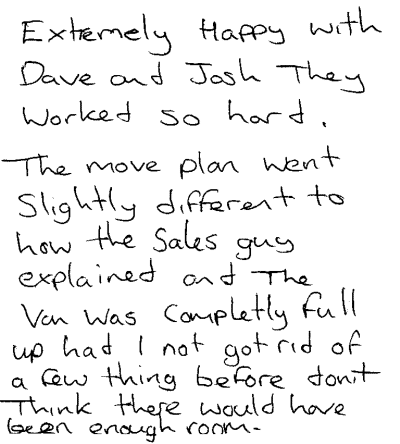 Extremely Happy with
Dave and Josh They
Worked so hard.
The move plan went
Slightly different to
how the Sales guy
explained and The
Van Was Completly full
up had I not got rid of
a few thing before don't
Think there would have
been enough room.